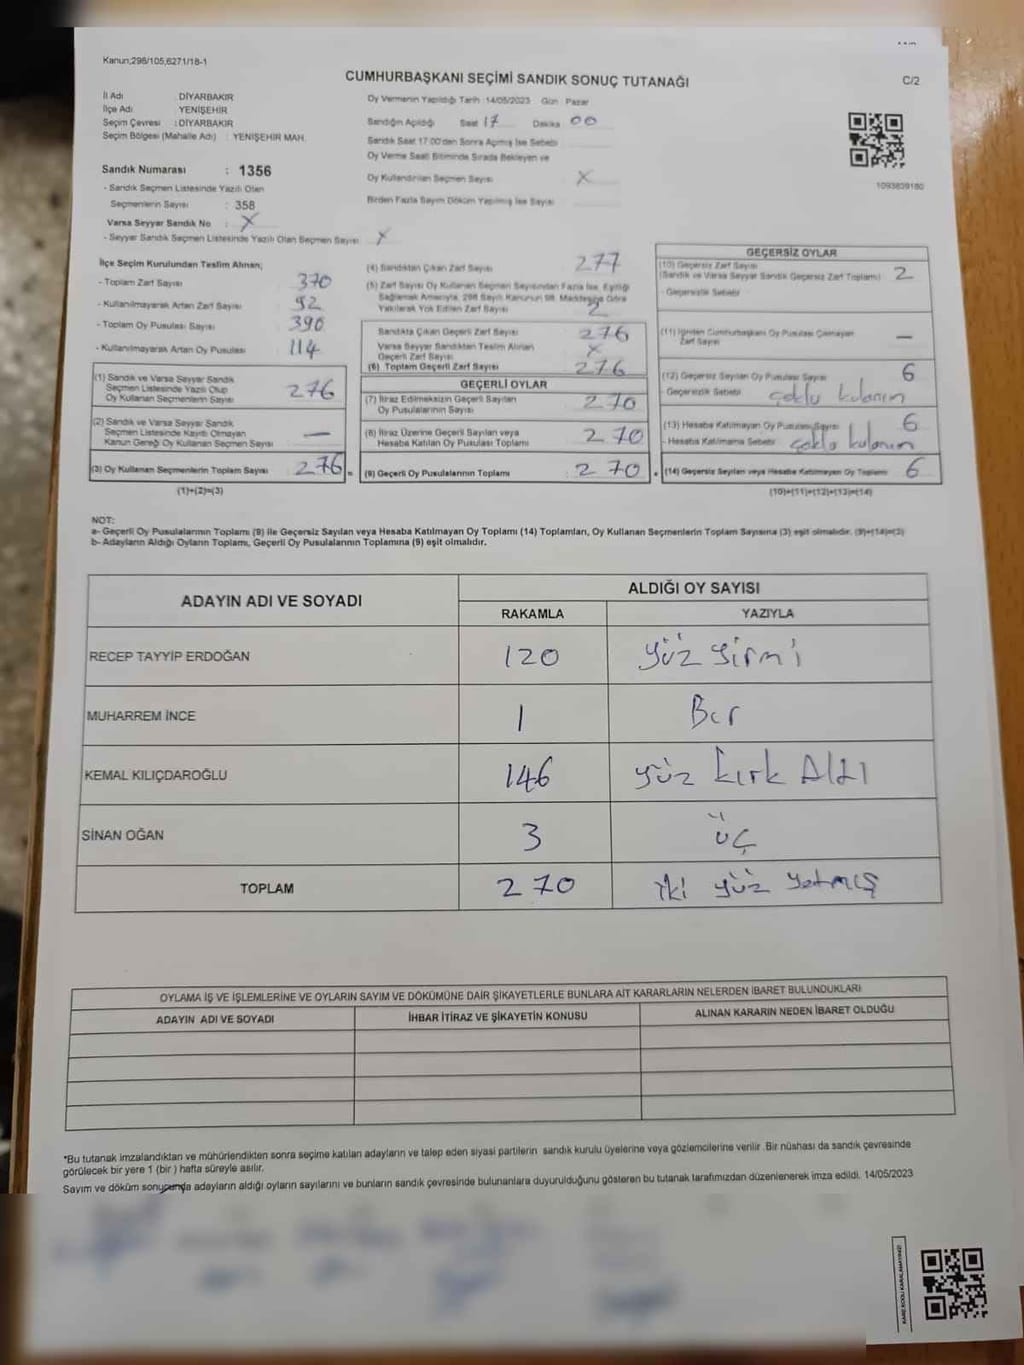 Kanun,298/105,6271/18-1
CUMHURBAŞKANI SEÇİMİ SANDIK SONUÇ TUTANAĞI
C/2
İl Adı : DİYARBAKIR
İlçe Adı : YENİŞEHİR
Seçim Çevresi : DİYARBAKIR
Seçim Bölgesi (Mahalle Adı) : YENİŞEHİR MAH.
Sandık Numarası : 1356
- Sandık Seçmen Listesinde Yazılı Olan
Seçmenlerin Sayısı : 358
Varsa Seyyar Sandık No : X
- Seyyar Sandık Seçmen Listesinde Yazılı Olan Seçmen Sayısı X
Oy Vermenin Yapıldığı Tarih 14/05/2023 Gün Pazar
Sandığın Açıldığı Saat 17 Dakika 00
Sandık Saat 17:00'den Sonra Açılmış İse Sebebi
Oy Verme Saati Bitiminde Sırada Bekleyen ve
Oy Kullandırılan Seçmen Sayısı X
Birden Fazla Sayım Döküm Yapılmış İse Sayısı
1093839180
İlçe Seçim Kurulundan Teslim Alınan;
- Toplam Zarf Sayısı 370
- Kullanılmayarak Artan Zarf Sayısı 92
- Toplam Oy Pusulası Sayısı 390
- Kullanılmayarak Artan Oy Pusulası 114
(1) Sandık ve Varsa Seyyar Sandık
Seçmen Listesinde Yazılı Olup
Oy Kullanan Seçmenlerin Sayısı 276
(2) Sandık ve Varsa Seyyar Sandık
Seçmen Listesinde Kayıtlı Olmayan
Kanun Gereği Oy Kullanan Seçmen Sayısı —
(3) Oy Kullanan Seçmenlerin Toplam Sayısı 276 =
(1)+(2)=(3)
(4) Sandıktan Çıkan Zarf Sayısı 277
(5) Zarf Sayısı Oy Kullanan Seçmen Sayısından Fazla İse, Eşitliği
Sağlamak Amacıyla, 298 Sayılı Kanunun 98. Maddesine Göre
Yakılarak Yok Edilen Zarf Sayısı 2
Sandıkta Çıkan Geçerli Zarf Sayısı 276
Varsa Seyyar Sandıktan Teslim Alınan
Geçerli Zarf Sayısı X
(6) Toplam Geçerli Zarf Sayısı 276
GEÇERLİ OYLAR
(7) İtiraz Edilmeksizin Geçerli Sayılan
Oy Pusulalarının Sayısı 270
(8) İtiraz Üzerine Geçerli Sayılan veya
Hesaba Katılan Oy Pusulası Toplamı 270
(9) Geçerli Oy Pusulalarının Toplamı 270
GEÇERSİZ OYLAR
(10) Geçersiz Zarf Sayısı
(Sandık ve Varsa Seyyar Sandık Geçersiz Zarf Toplamı) 2
- Geçersizlik Sebebi
(11) İçinden Cumhurbaşkanı Oy Pusulası Çıkmayan
Zarf Sayısı —
(12) Geçersiz Sayılan Oy Pusulası Sayısı 6
- Geçersizlik Sebebi çoklu kulanın
(13) Hesaba Katılmayan Oy Pusulası Sayısı 6
- Hesaba Katılmama Sebebi çoklu kulonın
(14) Geçersiz Sayılan veya Hesaba Katılmayan Oy Toplamı 6
(10)+(11)+(12)+(13)=(14)
NOT:
a- Geçerli Oy Pusulalarının Toplamı (9) ile Geçersiz Sayılan veya Hesaba Katılmayan Oy Toplamı (14) Toplamları, Oy Kullanan Seçmenlerin Toplam Sayısına (3) eşit olmalıdır. (9)+(14)=(3)
b- Adayların Aldığı Oyların Toplamı, Geçerli Oy Pusulalarının Toplamına (9) eşit olmalıdır.
ADAYIN ADI VE SOYADI
ALDIĞI OY SAYISI
RAKAMLA YAZIYLA
RECEP TAYYİP ERDOĞAN 120 yüz yirmi
MUHARREM İNCE 1 Bir
KEMAL KILIÇDAROĞLU 146 yüz kırk Altı
SİNAN OĞAN 3 üç
TOPLAM 270 iki yüz yetmiş
OYLAMA İŞ VE İŞLEMLERİNE VE OYLARIN SAYIM VE DÖKÜMÜNE DAİR ŞİKAYETLERLE BUNLARA AİT KARARLARIN NELERDEN İBARET BULUNDUKLARI
ADAYIN ADI VE SOYADI İHBAR İTİRAZ VE ŞİKAYETİN KONUSU ALINAN KARARIN NEDEN İBARET OLDUĞU
*Bu tutanak imzalandıktan ve mühürlendikten sonra seçime katılan adayların ve talep eden siyasi partilerin sandık kurulu üyelerine veya gözlemcilerine verilir. Bir nüshası da sandık çevresinde
görülecek bir yere 1 (bir ) hafta süreyle asılır.
Sayım ve döküm sonucunda adayların aldığı oyların sayılarını ve bunların sandık çevresinde bulunanlara duyurulduğunu gösteren bu tutanak tarafımızdan düzenlenerek imza edildi. 14/05/2023
KARE KODU KARALAMAYINIZ!